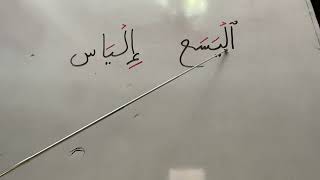 ٱلْيَسَع إِلْيَاس